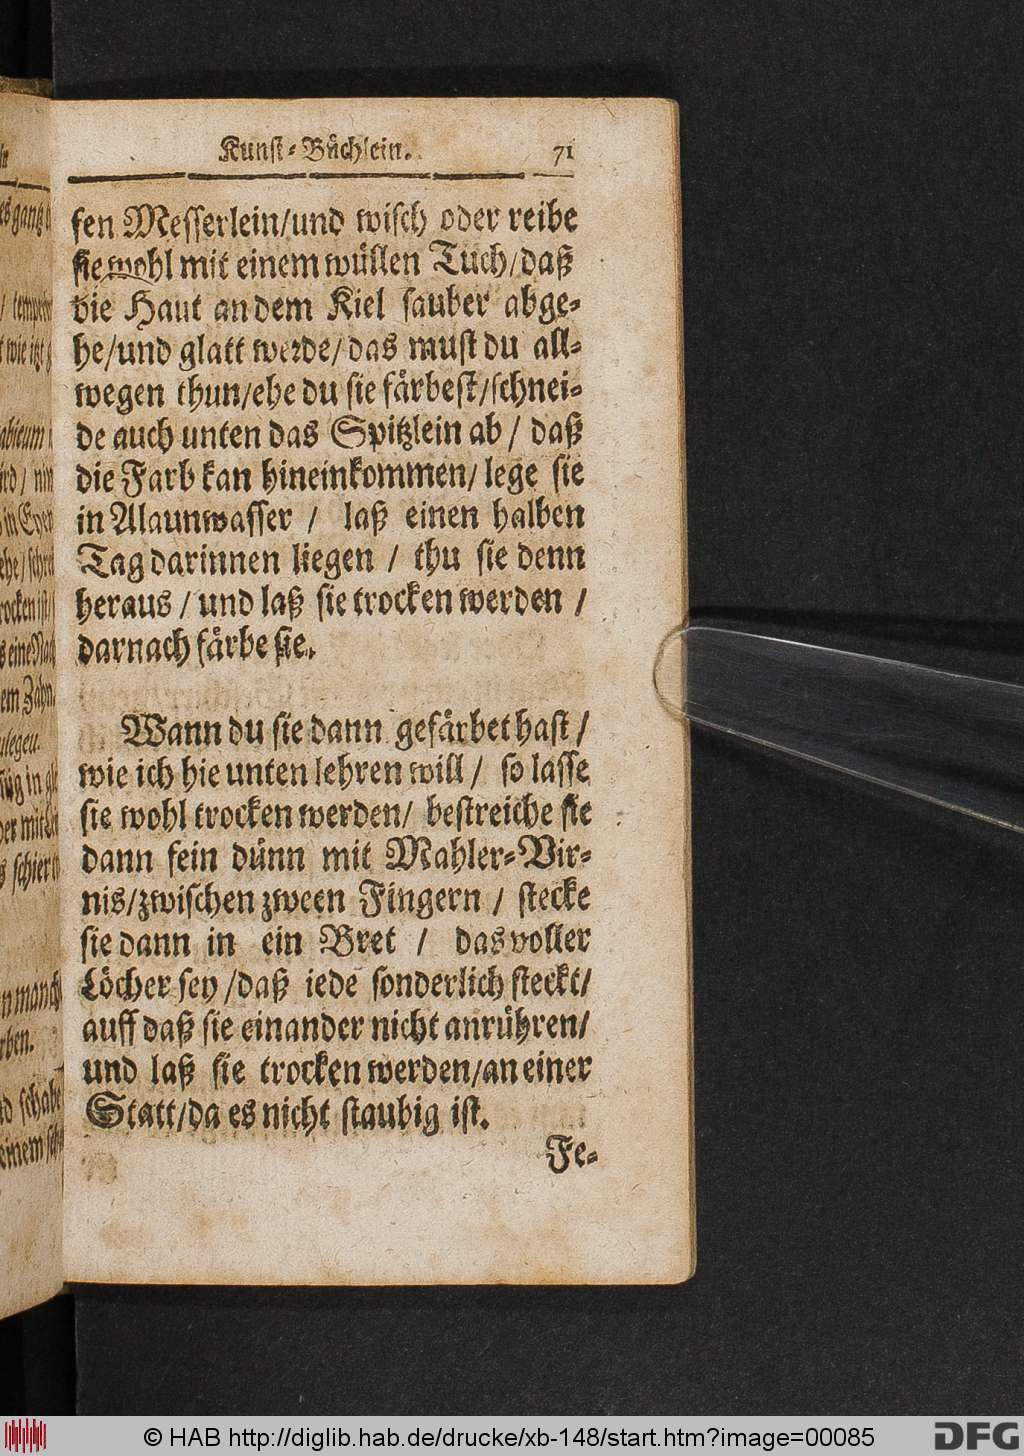 Kunst-Büchlein. 71
fen Messerlein/und wisch oder reibe
sie wohl mit einem wüllen Tuch/daß
die Haut an dem Kiel sauber abge-
he/und glatt werde/das must du all-
wegen thun/ehe du sie färbest/schnei-
de auch unten das Spitzlein ab/ daß
die Farb kan hineinkommen/ lege sie
in Alaunwasser / laß einen halben
Tag darinnen liegen / thu sie denn
heraus / und laß sie trocken werden /
darnach färbe sie.
Wann du sie dann gefärbet hast /
wie ich hie unten lehren will / so lasse
sie wohl trocken werden/ bestreiche sie
dann fein dünn mit Mahler-Vir-
nis/zwischen zween Fingern / stecke
sie dann in ein Bret / das voller
Löcher sey /daß iede sonderlich steckt/
auff daß sie einander nicht anrühren/
und laß sie trocken werden/an einer
Statt/da es nicht staubig ist.
Fe-
© HAB http://diglib.hab.de/drucke/xb-148/start.htm?image=00085
DFG